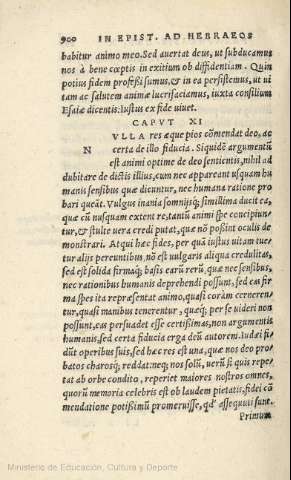 900 IN EPIST. AD HEBRAEOS
babitur animo meo. Sed auertat deus, ut subducamus
nos à bene cœptis in exitium ob diffidentiam. Quin
potius fidem professi sumus, & in ea persistemus, ut ui
tam ac salutem animæ lucrifaciamus, iuxta consilium
Esaiæ dicentis: Iustus ex fide uiuet.
CAPVT XI
N VLLA res æque pios cõmendat deo, ac
certa de illo fiducia. Siquidẽ argumentũ
est animi optime de deo sentientis, nihil ad
dubitare de dictis illius, cum nec appareant usquam hu
manis sensibus quæ dicuntur, nec humana ratione pro
bari queãt. Vulgus inania somnijsq; simillima ducit ea,
quæ cũ nusquam extent re, tantũ animi spe concipiun
tur, & stulte uera credi putat, quæ nõ possint oculis de
monstrari. Atqui hæc fides, per quã iustus uitam tue=
tur alijs pereuntibus, nõ est uulgaris aliqua credulitas,
sed est solida firmaq; basis earũ rerũ, quæ nec sensibus,
nec rationibus humanis deprehendi possunt, sed eas fir
ma spes ita repræsentat animo, quasi coràm cerneren=
tur, quasi manibus tenerentur, quæq; per se uideri non
possunt, eas persuadet esse certissimas, non argumentis
humanis, sed certa fiducia erga deũ autorem. Iudæi fi=
dũt operibus suis, sed hæc res est una, quæ nos deo pro=
batos charosq; reddat: neq; nos solũ, uerũ si quis repe=
tat ab orbe condito, reperiet maiores nostros omnes,
quorũ memoria celebris est ob laudem pietatis, fidei cõ
mendatione potissimũ promeruisse, qd' assequuti sunt.
Primum
Ministerio de Educación, Cultura y Deporte